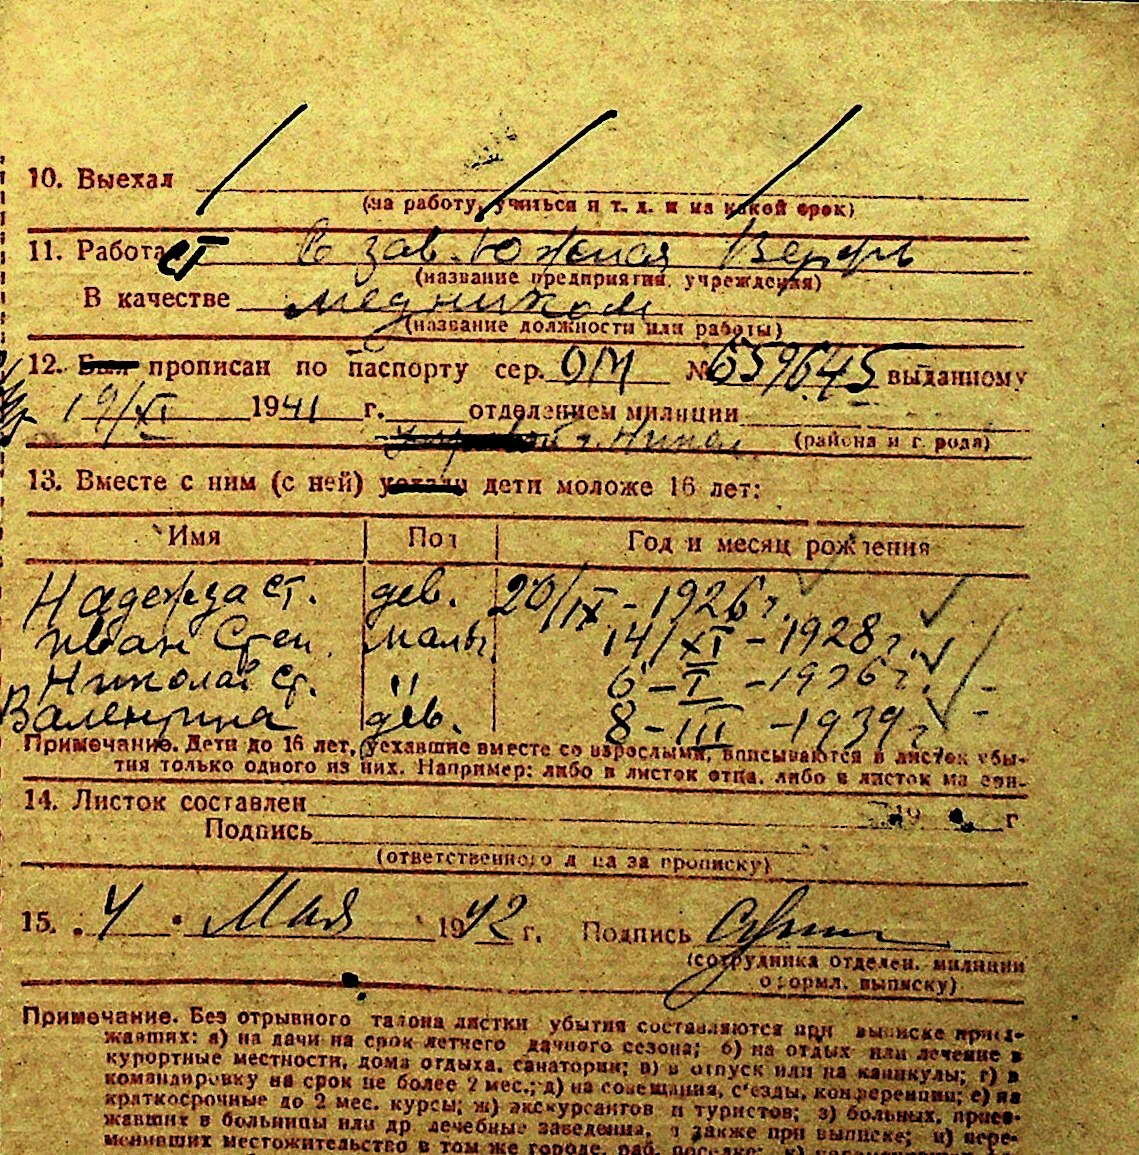 10. Выехал
(на работу, учиться и т. д. и на какой срок)
11. Работает В зав. Южная Верфь
(название предприятия, учреждения)
В качестве медником
(название должности или работы)
12. Был прописан по паспорту сер. ОМ № 659645 выданному
19/XI 1941 г. отделением милиции
г. Никол (района и города)
13. Вместе с ним (с ней) уехали дети моложе 16 лет:
Имя Пол Год и месяц рождения
Надежда Ст. дев. 20/IX - 1926 г.
Иван Степ. мальч. 14/XI - 1928 г.
Николай Ст. " 6 - I - 1936 г.
Валентина дев. 8 - III - 1939 г.
Примечание. Дети до 16 лет, уехавшие вместе со взрослыми, вписываются в листок убы-
тия только одного из них. Например: либо в листок отца, либо в листок матери.
14. Листок составлен 19 г
Подпись
(ответственного лица за прописку)
15. „4 " Мая 1942 г. Подпись
(сотрудника отделен. милиции
оформл. выписку)
Примечание. Без отрывного талона листки убытия составляются при выписке приез-
жавших: а) на дачи на срок летнего дачного сезона; б) на отдых или лечение в
курортные местности, дома отдыха, санатории; в) в отпуск или на каникулы; г) в
командировку на срок не более 2 мес.; д) на совещания, съезды, конференции; е) на
краткосрочные до 2 мес. курсы; ж) экскурсантов и туристов; з) больных, приез-
жавших в больницы или др лечебные заведения, а также при выписке; и) пере-
менивших местожительство в том же городе, раб. поселке;